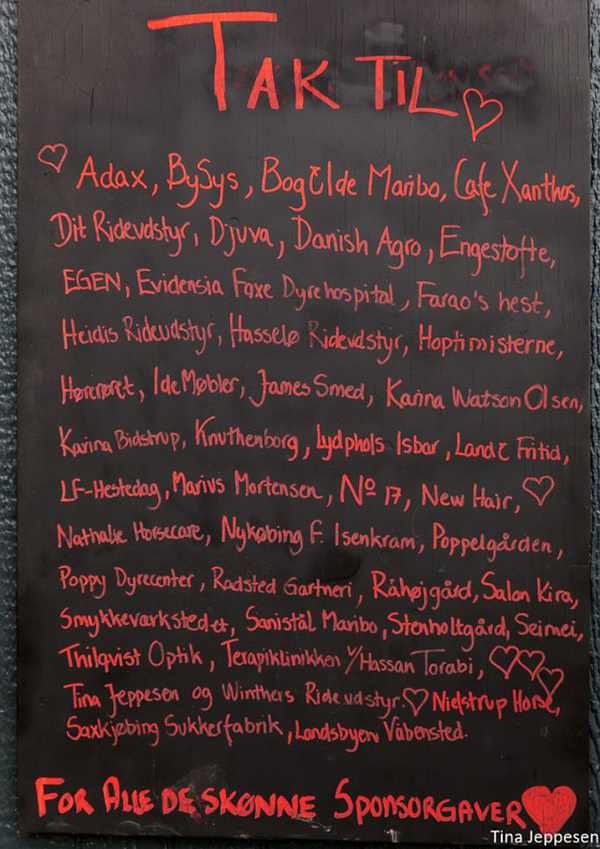 TAK TIL
Adax, BySys, Bog & Ide Maribo, Cafe Xanthos,
Dit Rideudstyr, Djuva, Danish Agro, Engestofte,
EGEN, Evidensia Faxe Dyrehospital, Farao's hest,
Heidis Rideudstyr, Hasselø Rideudstyr, Hoptimisterne,
Hørerøret, Ide Møbler, James Smed, Karina Watson Olsen,
Karina Bidstrup, Knuthenborg, Lydphols Isbar, Land & Fritid,
LF-Hestedag, Marius Mortensen, Nº 17, New Hair,
Nathalie Horsecare, Nykøbing F. Isenkram, Poppelgården,
Poppy Dyrecenter, Radsted Gartneri, Råhøjgård, Salon Kira,
Smykkeværkstedet, Sanistål Maribo, Stenholtgård, Seimei,
Thilqvist Optik, Terapiklinikken v/Hassan Torabi,
Tina Jeppesen og Winthers Rideudstyr. Nielstrup Horse,
Saxkjøbing Sukkerfabrik, Landsbyen Våbensted.
FOR ALLE DE SKØNNE SPONSORGAVER
Tina Jeppesen